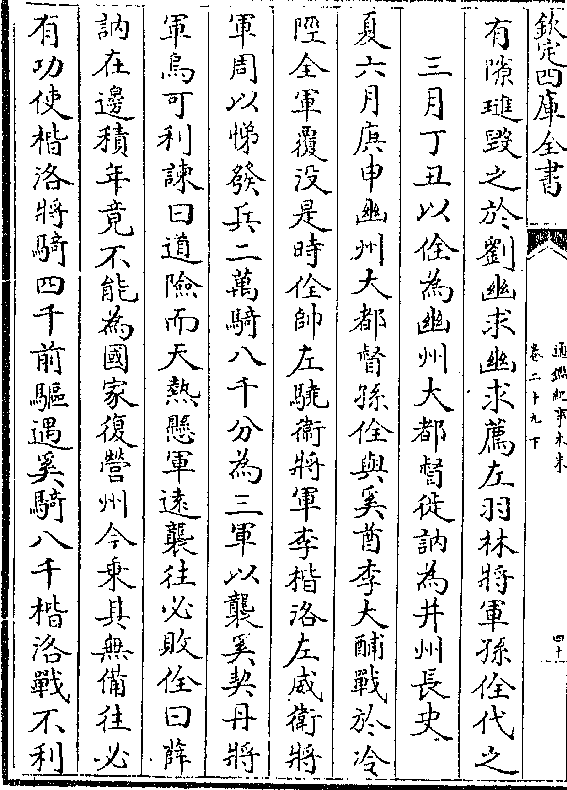 欽定四庫全書
通鑑紀事本末
卷二十九下
四十
有隙璡毁之於劉幽求幽求薦左羽林將軍孫佺代之
三月丁丑以佺為幽州大都督徙訥為并州長史
夏六月庚申幽州大都督孫佺與奚酋李大酺戰於冷
陘全軍覆没是時佺帥左驍衛將軍李楷洛左威衛將
軍周以悌發兵二萬騎八千分為三軍以襲奚契丹將
軍烏可利諫曰道險而天熱懸軍遠襲往必敗佺曰薛
訥在邊積年竟不能為國家復營州今乘其無備往必
有功使楷洛將騎四千前驅遇奚騎八千楷洛戰不利